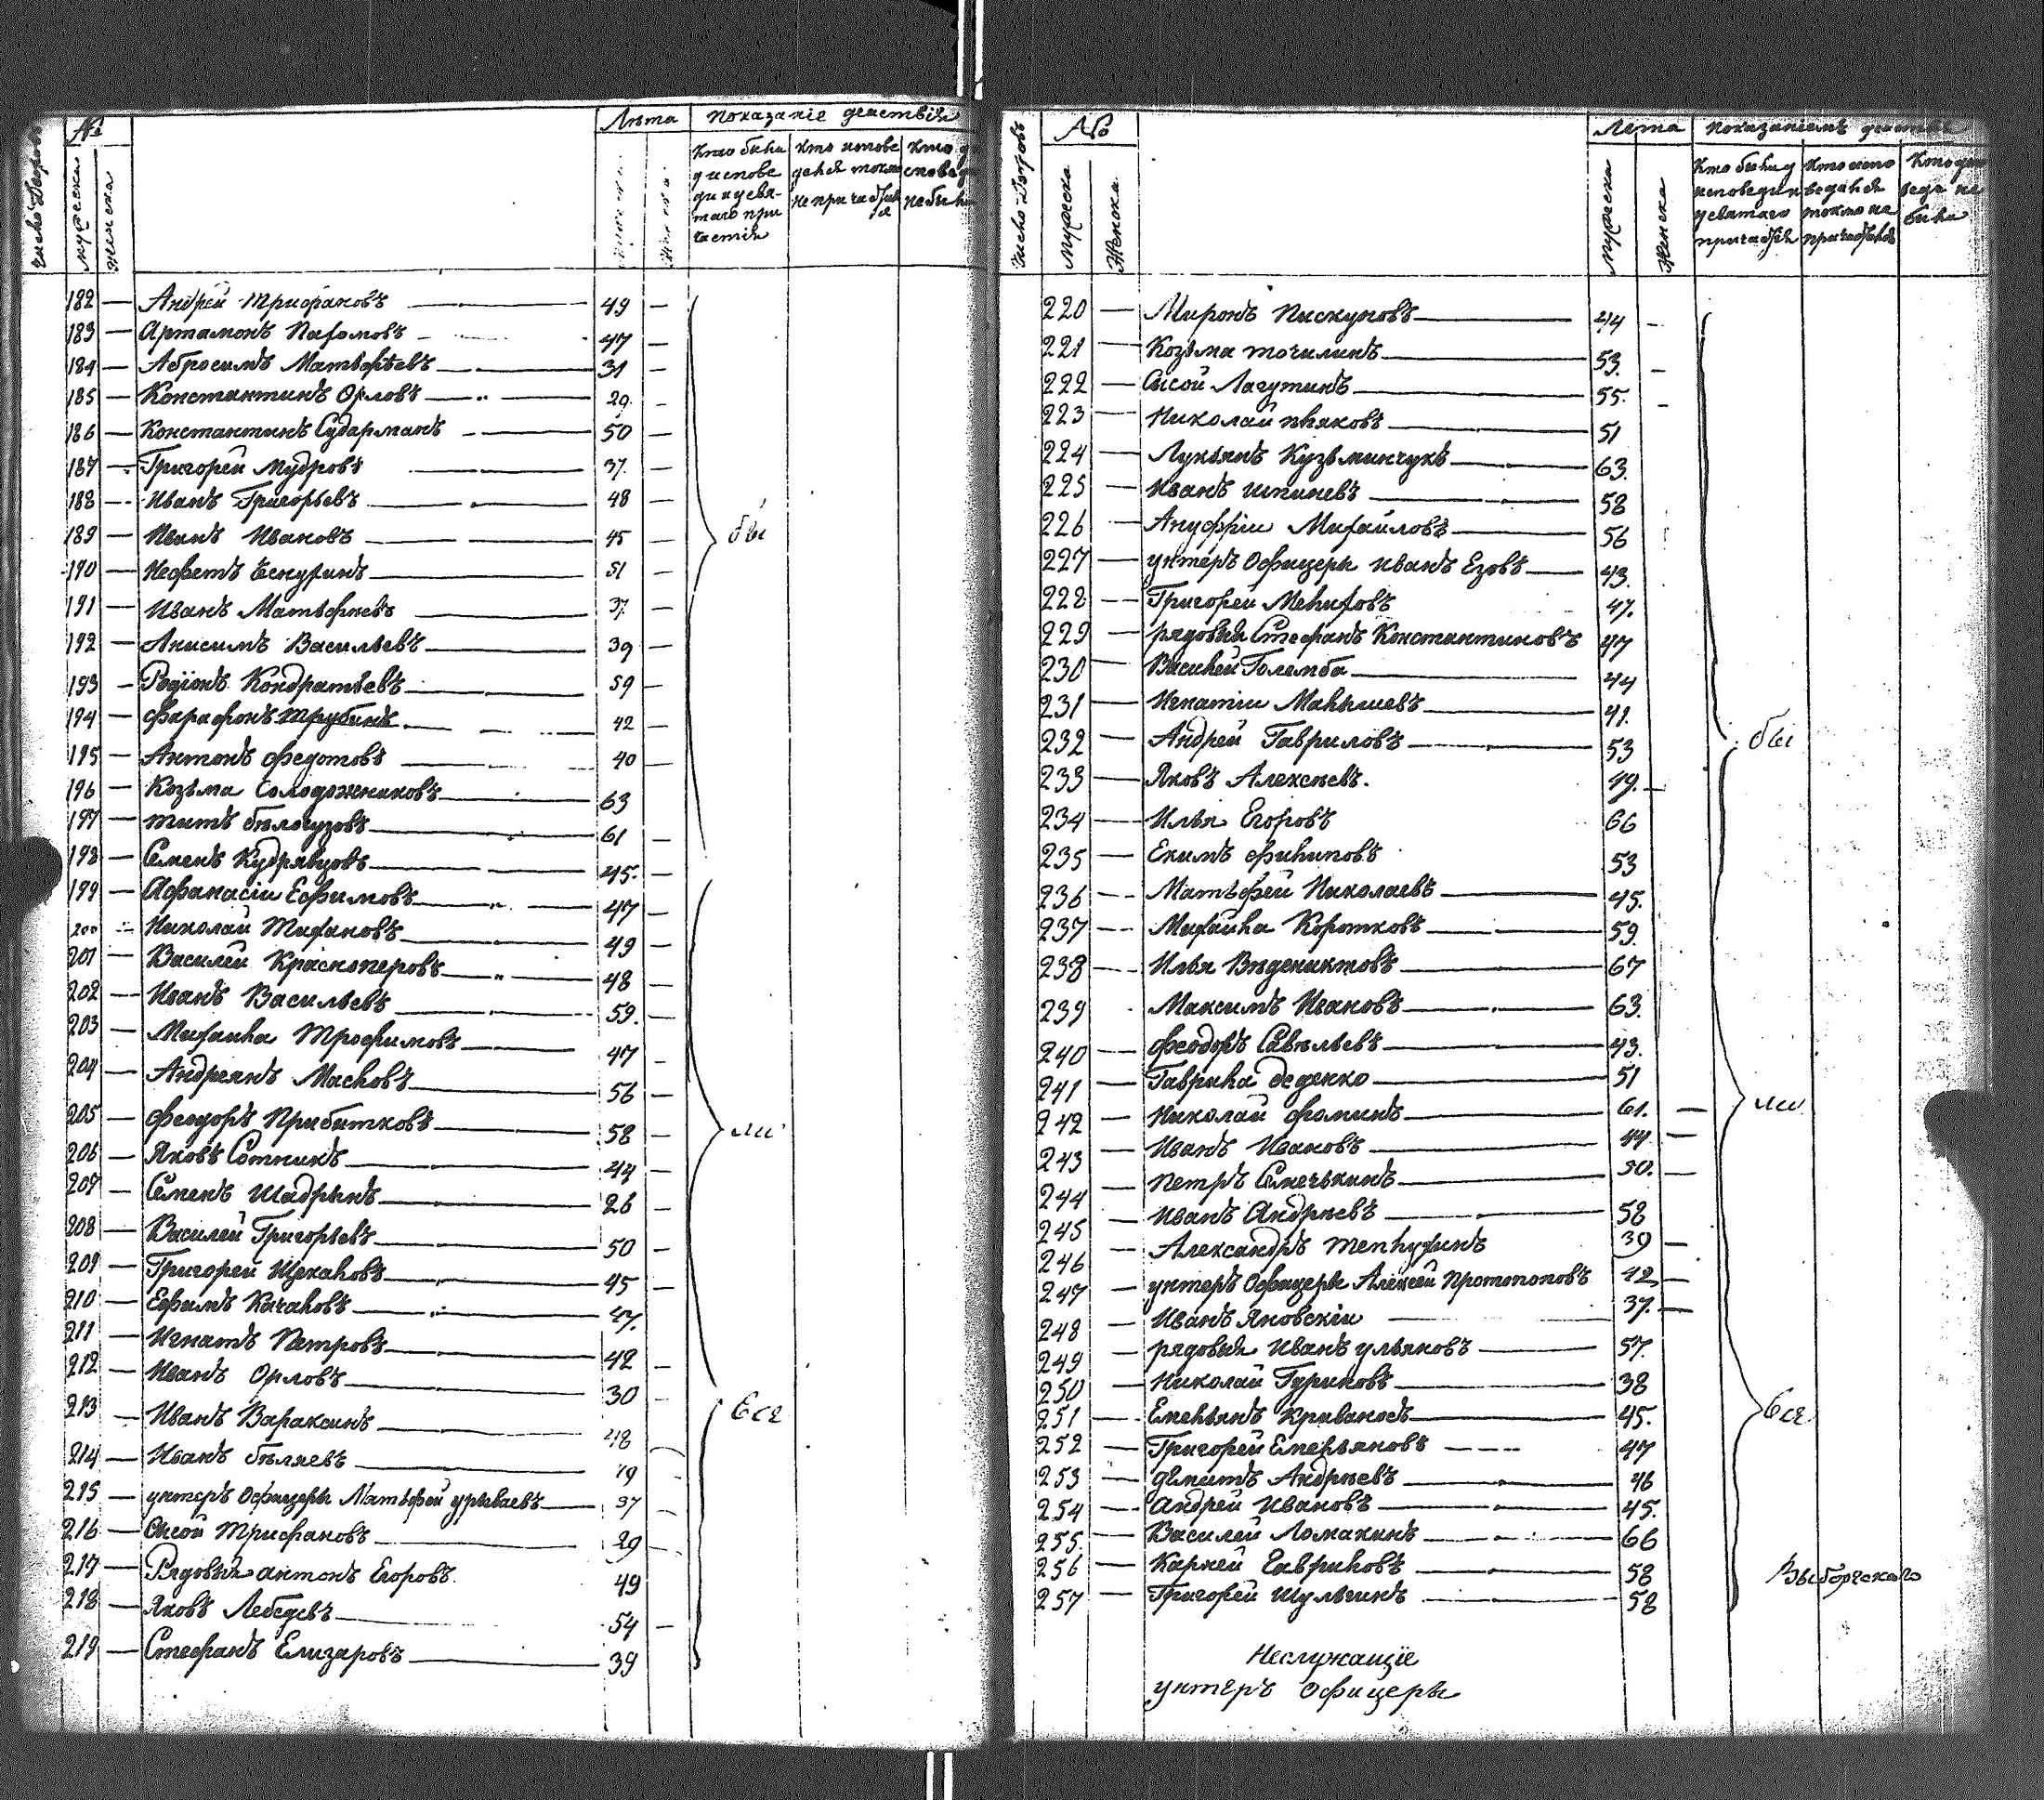 Число Дворовъ
№
мужеска
женска
Лѣта
Показаніе дѣйствія
кто были у исповеди и усвятаго причастія
кто исповедался токмо не причастился
182 — Андрей Трифановъ — 49 —
183 — Артамонъ Пахомовъ — 47 —
184 — Абросимъ Матвѣевъ — 31 —
185 — Константинъ Орловъ — 29. —
186 — Константинъ Сударманъ — 50 —
187 — Григорей Мудровъ — 37. —
188 — Иванъ Григорьевъ — 48 —
189 — Иванъ Ивановъ — 45 —
бы
190 — 51 —
191 — Иванъ Матвѣевъ — 37. —
192 — Анисимъ Васильевъ — 39 —
193 — Родіонъ Кондратьевъ — 59 —
194 — Фарафонъ Трубинъ — 42 —
195 — Антонъ Федотовъ — 40 —
196 — Козьма Солодожниковъ — 63
197 — Титъ Белогузовъ — 61 —
198 — Семенъ Кудрявцовъ — 45. —
199 — Афанасіи Ефимовъ — 47 —
200 — Николай Тихановъ — 49 —
201 Василей Красноперовъ — 48 —
202 — Иванъ Васильевъ — 59. —
203 — Михаила Трофимовъ — 47 —
204 — Андреянъ Масловъ — 56 —
205 — Феодоръ Прибытковъ — 58 —
ли
206 — Яковъ Сотникъ — 44 —
207 — Семенъ Шадрынъ — 26 —
208 — Василей Григорьевъ — 50 —
209 — Григорей Щекаловъ — 45 —
210 — Ефимъ Качаловъ — 47. —
211 — Игнатъ Петровъ — 42 —
212 — Иванъ Орловъ — 30 —
все
213 — Иванъ Вараксинъ — 48
214 — Иванъ Беляевъ — 49
215 — унтеръ Офицеры Матьфей Урываевъ — 37 —
216 — Сысой Трифановъ — 29
217 — Рядовыя Антонъ Егоровъ. 49
218 — Яковъ Лебедевъ — 54 —
219 — Стефанъ Елизаровъ — 39
Число Дворовъ
№
Мужеска
Женска
Лета
Мужеска
Женска
кто были у исповеди и усватаго причастія
кто исповедался токмо не причастился
220 — Миронъ Пискуновъ — 44 —
221 — Козьма Точилинъ — 53. —
222 — Сысой Лагутинъ — 55. —
223 — Николай Пьяковъ — 51
224 — Лукьянъ Кузьминчукъ — 63.
225 — Иванъ Шпиневъ — 58
226 — Ануфріи Михайловъ — 56
227 — унтеръ Офицеры Иванъ Езовъ — 43.
228 — Григорей Мелиховъ 47.
229 — рядовыя Стефанъ Константиновъ 47
230 — Василей Големба — 44
231 — Игнатіи Малышевъ — 41.
232 — Андрей Гавриловъ — 53
бы
233 — Яковъ Алексеевъ. 49. —
234 — Илья Егоровъ 66
235 — Екимъ Филиповъ 53
236 — Матьфей Николаевъ — 45.
237 — Михаила Коротковъ — 59.
238 — Илья Виденихтовъ — 67
239 Максимъ Ивановъ — 63.
240 — Феодоръ Савельевъ — 43.
241 — Гаврила Деденко — 51
ли
242 — Николай Фоминъ — 61. —
243 — Иванъ Ивановъ — 44. —
244 — Петръ Семечькинъ — 50. —
245 — Иванъ Андреевъ — 58
246 — Александръ Теплухинъ 39 —
247 — унтеръ Офицеры Алексей Протопоповъ 42 —
248 — Иванъ Яновскіи — 37. —
249 — рядовыя Иванъ Ульяновъ — 57.
250 — Николай Гуриновъ — 38
251 — Емельянъ Кривоносъ — 45.
все
252 — Григорей Емельяновъ — 47
253 — Дементъ Андреевъ — 46
254 — Андрей Ивановъ — 45.
255. — Василей Ломакинъ — 66
256 — Карней Гавриловъ — 58
257 — Григорей Шульгинъ — 58
Выборгскаго
Неслужащіе
унтеръ Офицеры